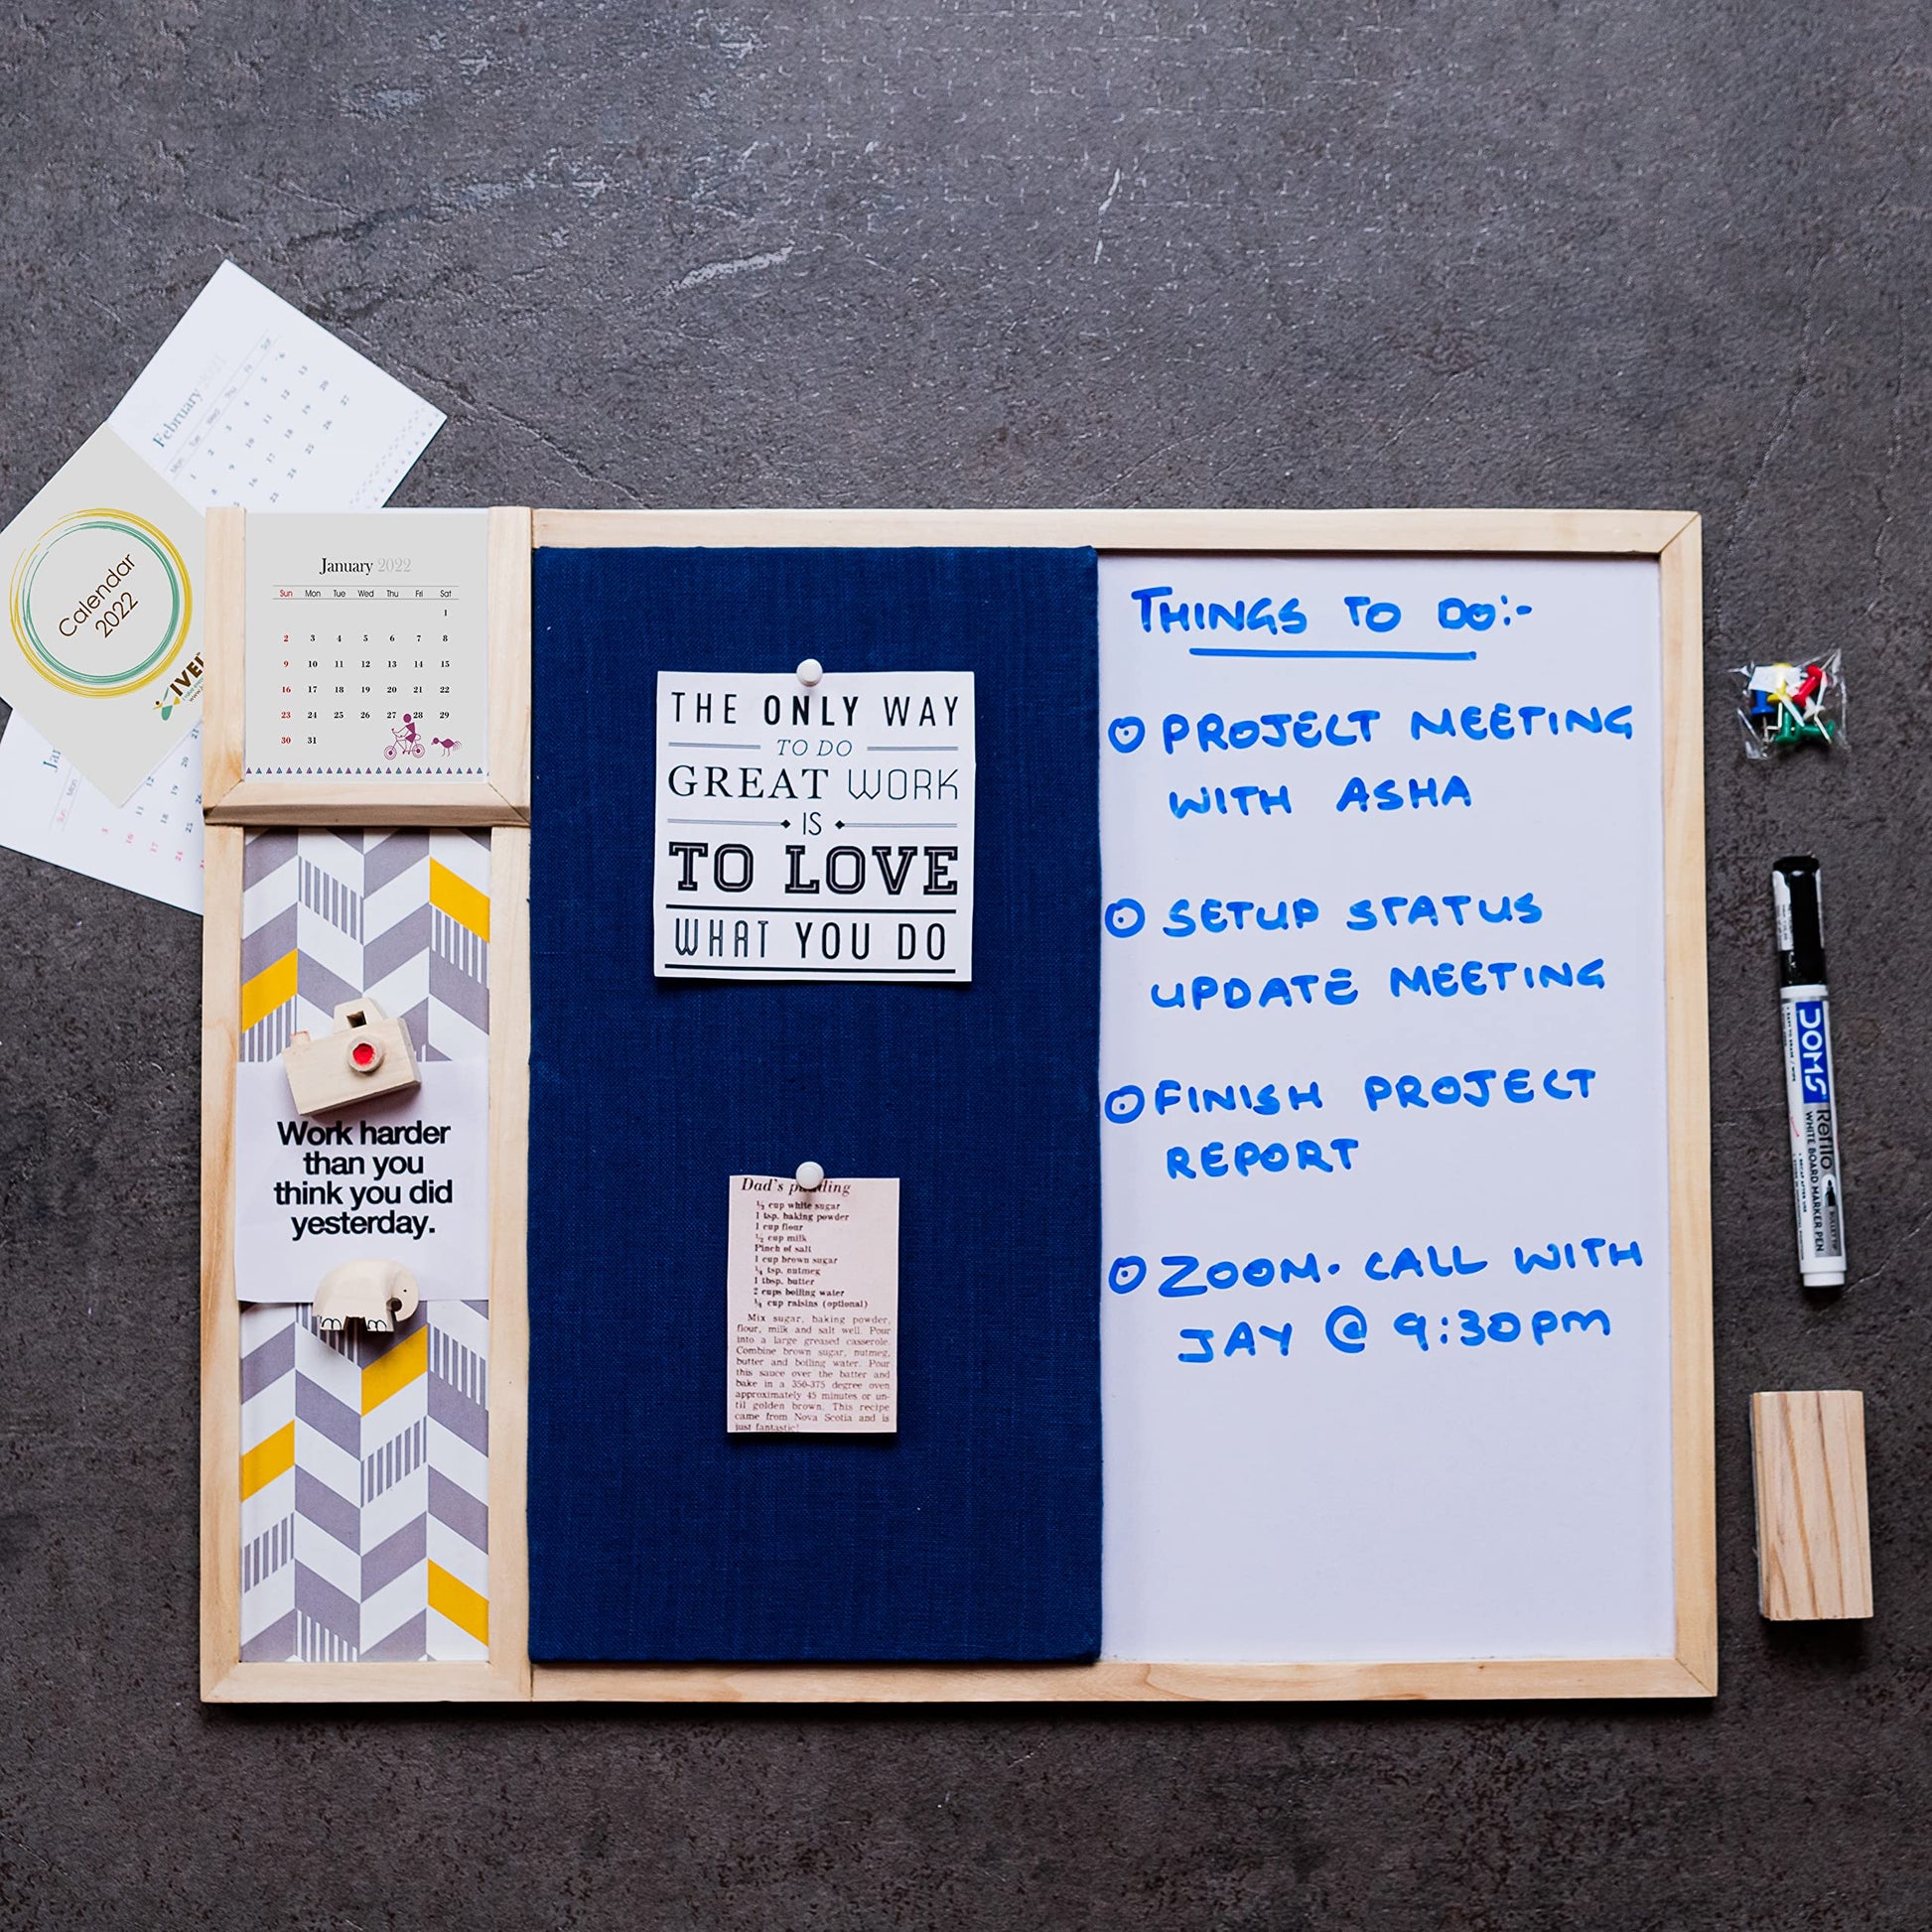 February
Calendar
2022
January 2022
Sun Mon Tue Wed Thu Fri Sat
1
2 3 4 5 6 7 8
9 10 11 12 13 14 15
16 17 18 19 20 21 22
23 24 25 26 27 28 29
30 31
Work harder
than you
think you did
yesterday.
THE ONLY WAY
TO DO
GREAT WORK
IS
TO LOVE
WHAT YOU DO
Dad's pudding
1 tsp. baking powder
1 cup flour
½ cup milk
Pinch of salt
1 cup brown sugar
¼ tsp. nutmeg
1 tbsp. butter
2 cups boiling water
¾ cup raisins (optional)
Mix sugar, baking powder,
flour, milk and salt well. Pour
into a large greased casserole.
Combine brown sugar, nutmeg,
butter and boiling water. Pour
this sauce over the batter and
bake in a 350-375 degree oven
approximately 45 minutes or un-
til golden brown. This recipe
came from Nova Scotia and is
just fantastic!
THINGS TO DO:-
PROJECT MEETING
WITH ASHA
SETUP STATUS
UPDATE MEETING
FINISH PROJECT
REPORT
ZOOM. CALL WITH
JAY @ 9:30pm
DOMS
Refilo
WHITE BOARD MARKER PEN